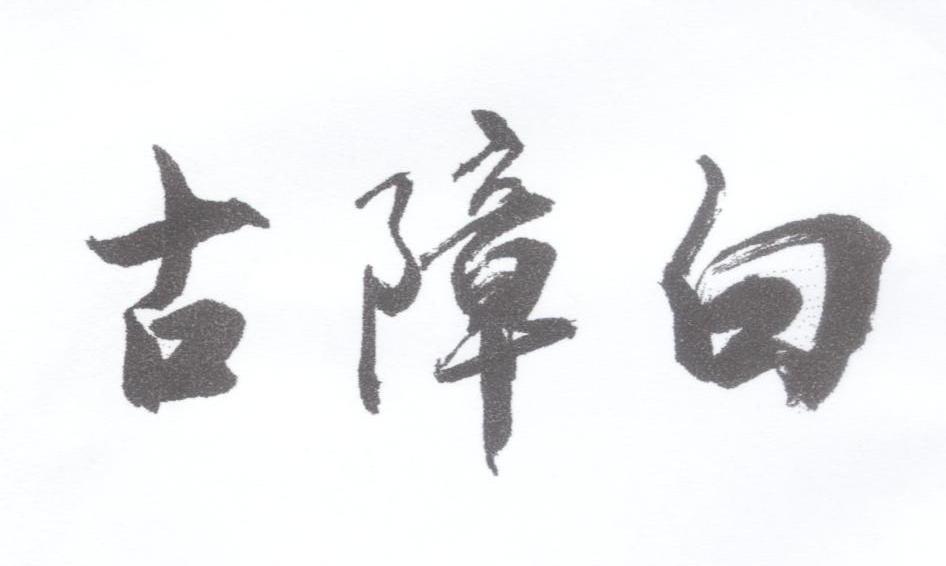 古障白